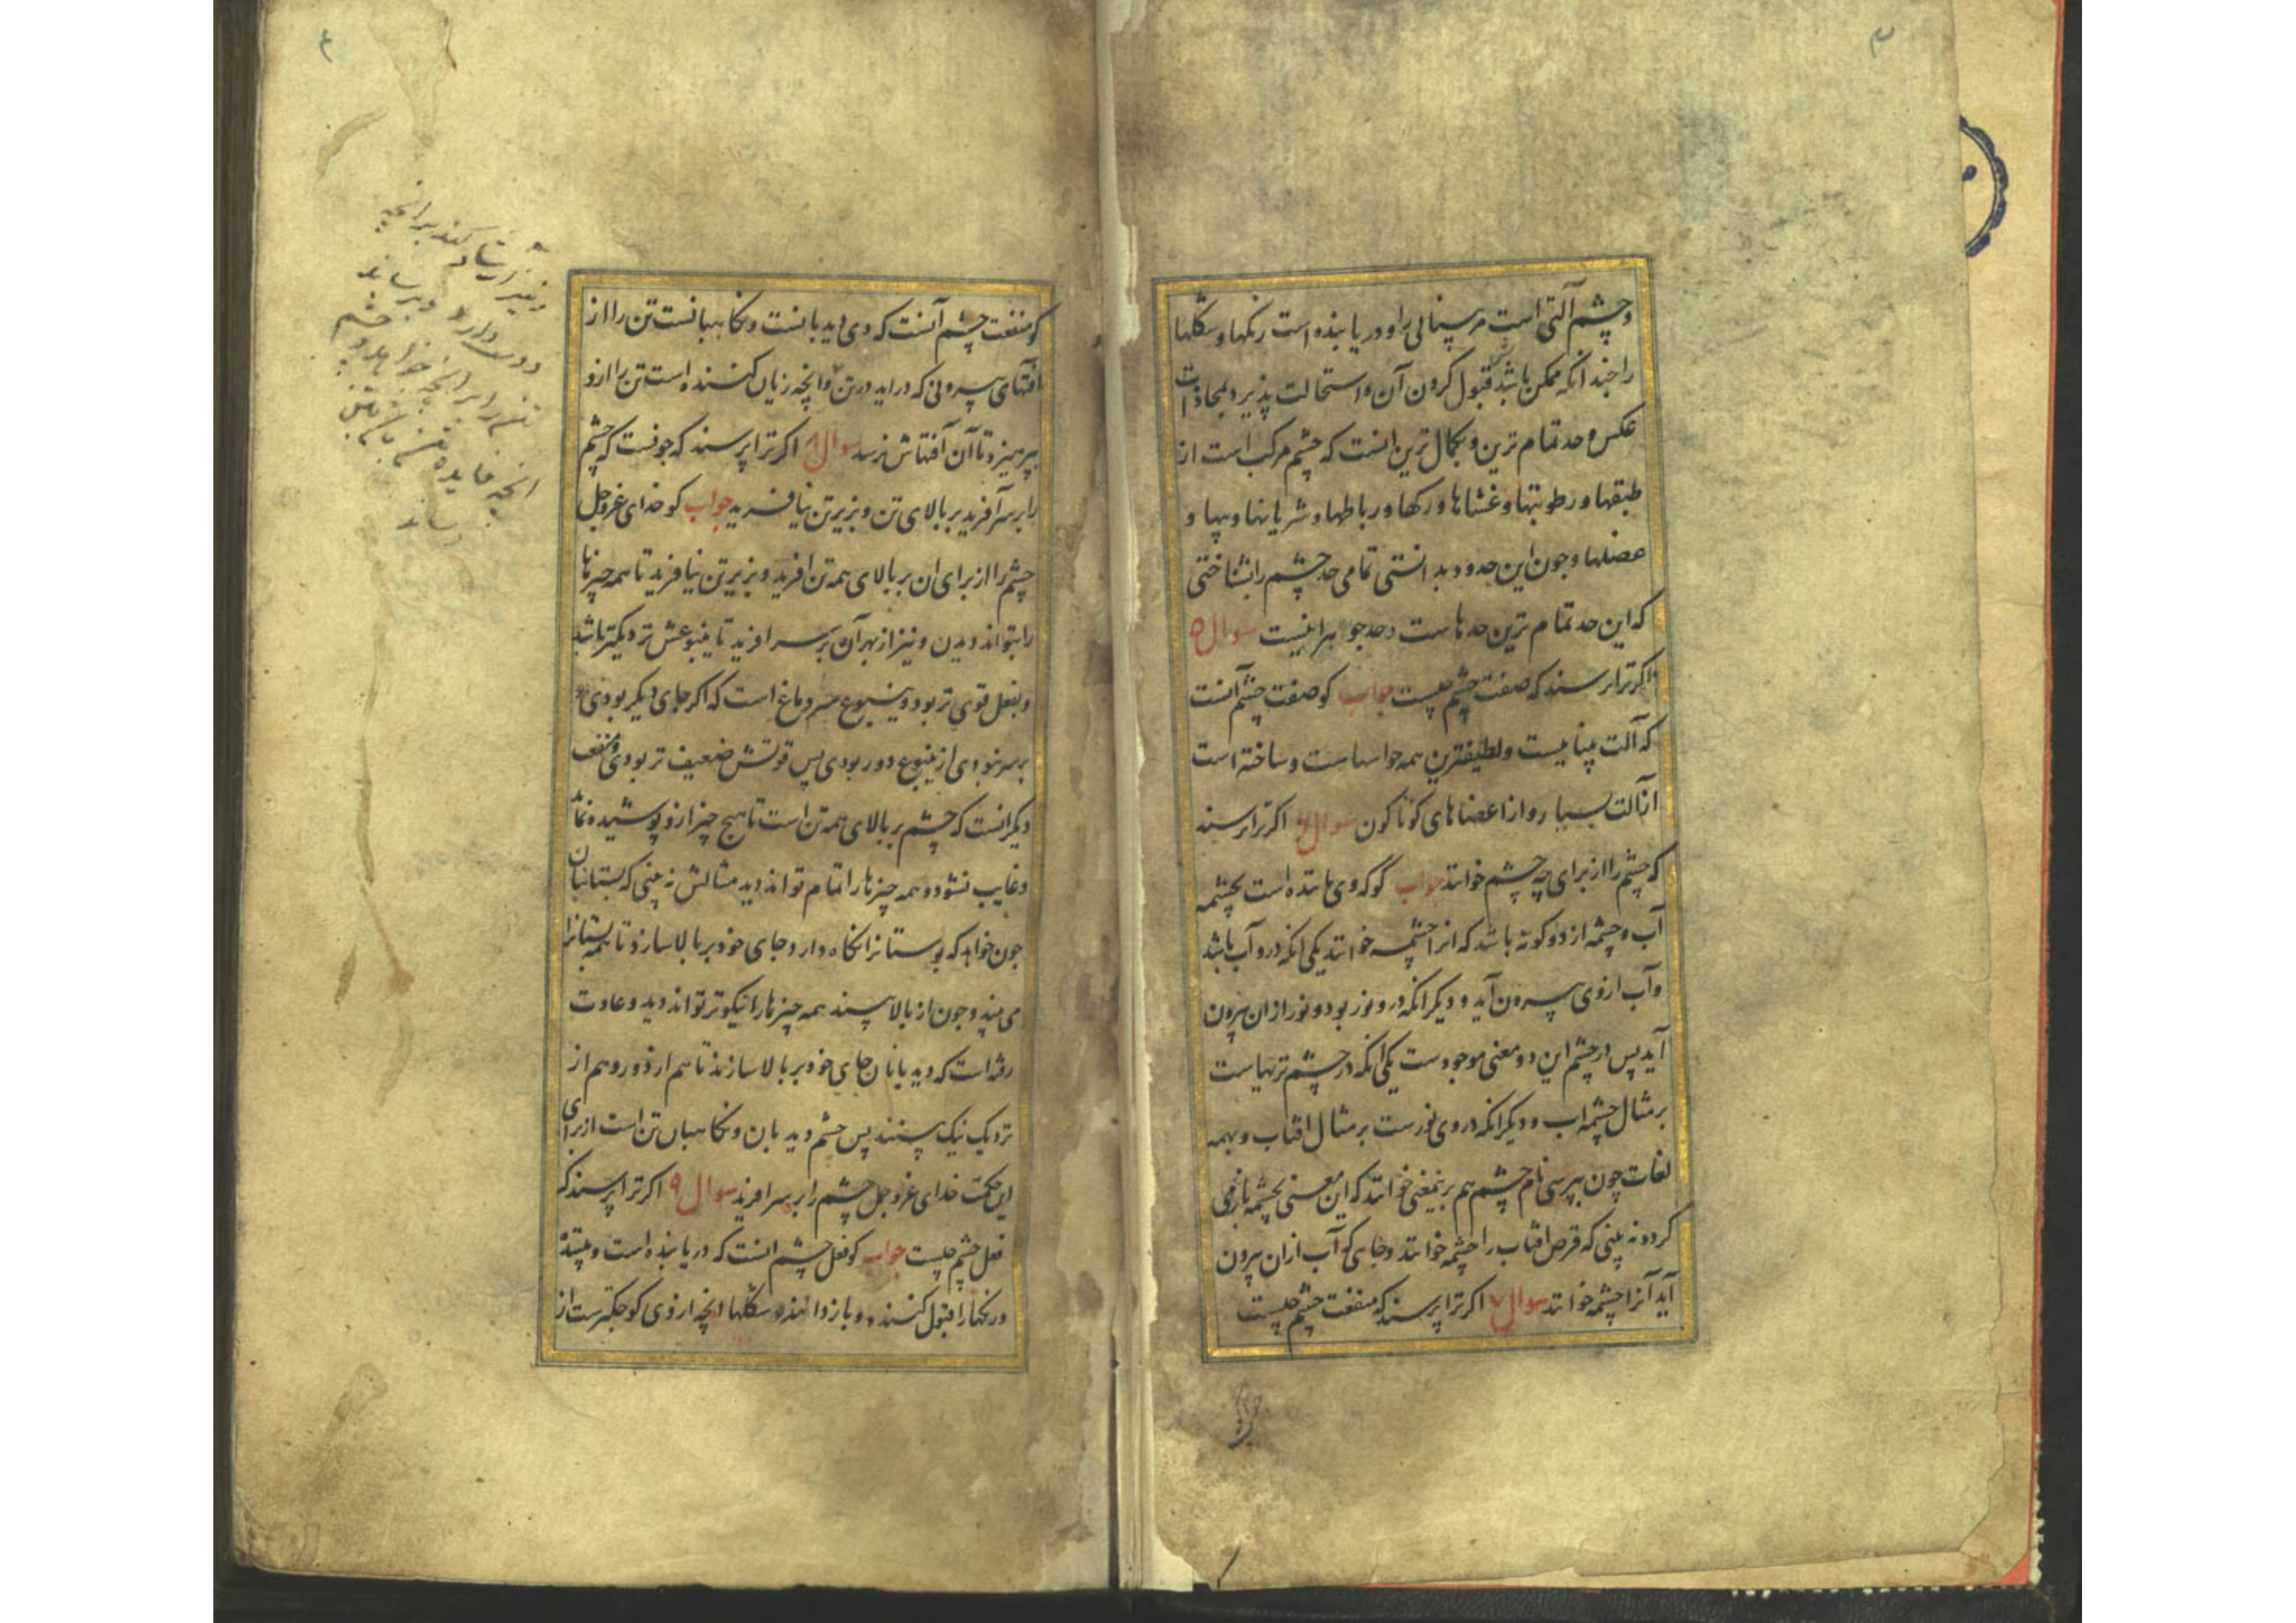 ۳
وچشم آلتی است مر بینائی را و دریابنده است رنکها و شکلها
را چندانکه ممکن باشد قبول کردن آن و استحالت پذیرد بمحاذات
عکس و حد تمام ترین و بکمال ترین انست که چشم مرکب است از
طبقها و رطوبتها و غشاها و رکها و رباطها و شریانها و پیها و
عضلها و چون این حدود بدانستی تمامی حد چشم را بشناختی
که این حد تمام ترین حدهاست و حد جوهر اینست سوال ۵
اکر ترا پرسند که صفت چشم چیست جواب کو صفت چشم انست
که آلت بینائیست و لطیفترین همه حواسهاست و ساخته است
از آلت بسیار و از اعضاهای کوناکون سوال ۶ اکر ترا پرسند
که چشم را از برای چه چشم خوانند جواب کو که وی ماننده است بچشمه
آب و چشمه از دو کونه باشد که انرا چشمه خوانند یکی انکه درو آب باشد
و آب ازوی بیرون آید و دیکر انکه درو نور بود و نور ازان بیرون
آید پس در چشم این دو معنی موجودست یکی انکه در چشم تریهاست
بر مثال چشمه اب و دیکر انکه در وی نورست بر مثال افتاب و بهمه
لغات چون بپرسی نام چشم هم برینمعنی خوانند که این معنی بچشمه باز می
کردد نه بینی که قرص افتاب را چشمه خوانند و جایی که آب ازان بیرون
آید آنرا چشمه خوانند سوال ۷ اکر ترا پرسند که منفعت چشم چیست
جواب
۴
کو منفعت چشم آنست که وی دیدبانست و نکاهبانست تن را از
افتهای بیرونی که دراید در تن و انچه زیان کننده است تن را ازو
بپرهیزد تا آن آفتهاش نرسد سوال ۸ اکر ترا پرسند که چونست که چشم
را بر سر آفرید بر بالای تن و بزیر تن نیافرید جواب کو خدای عزوجل
چشم را از برای ان بر بالای همه تن افرید و بزیر تن نیافرید تا همه چیزها
را بتواند دیدن و نیز از بهر آن بر سر افرید تا ینبوعش نزدیکتر باشد
و بفعل قوی تر بود و ینبوع سر دماغ است که اکر جای دیکر بودی و
بر سر نبودی از ینبوع دور بودی پس قوتش ضعیف تر بودی و منفعت
دیکر انست که چشم بر بالای همه تن است تا هیچ چیز ازو پوشیده نماند
و غایب نشود و همه چیزها را تمام تواند دید مثالش نه بینی که بستانبان
چون خواهد که بوستانرا نکاه دارد جای خود بر بالا سازد تا همه بستانرا
می بیند و چون از بالا بیند همه چیزها را نیکوتر تواند دید و عادت
رفته است که دیدبانان جای خود بر بالا سازند تا هم از دور و هم از
نزدیک نیک بینند پس چشم دیدبان و نکاهبان تن است از برای
این حکمت خدای عزوجل چشم را بر سر افرید سوال ۹ اکر ترا پرسند که
فعل چشم چیست جواب کو فعل چشم انست که دریابنده است و بیننده
و رنکها را قبول کننده و باز دانندهٔ شکلها انچه ازوی کوچکترست از
دوست دارد و برساند
انچه فایده
رساند